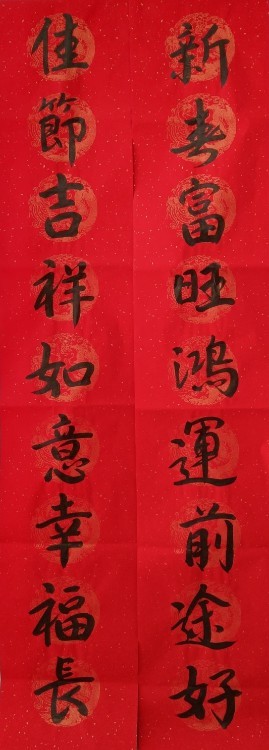 新春富旺鴻運前途好
佳節吉祥如意幸福長